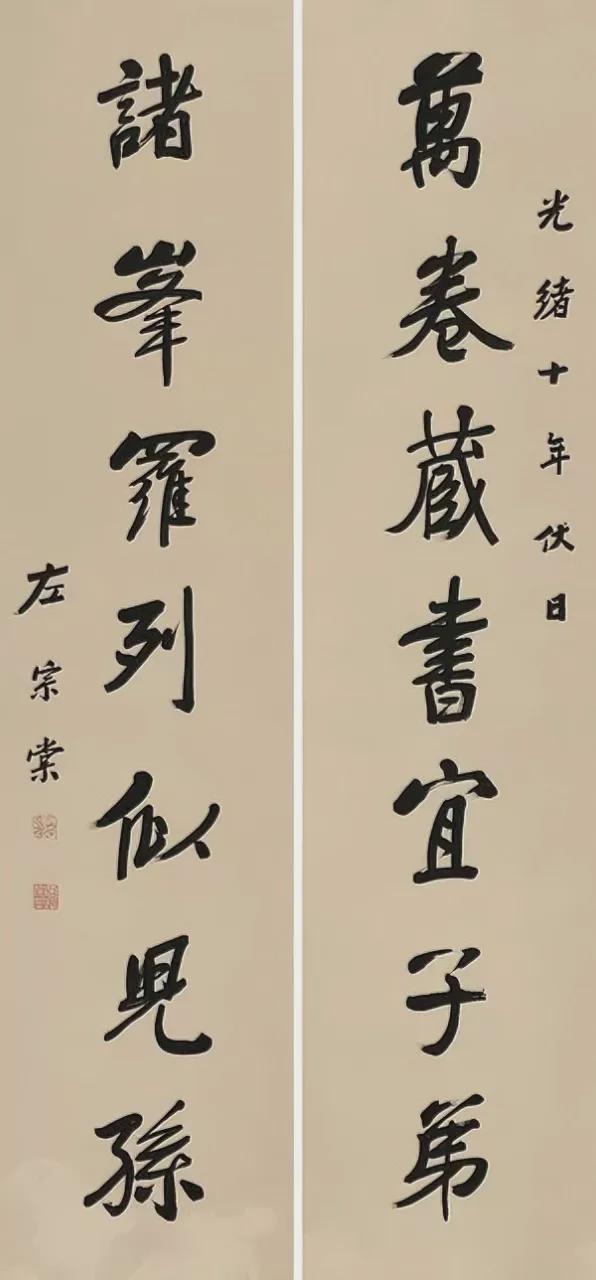 光緒十年伏日
萬卷藏書宜子弟
諸峯羅列似兒孫
左宗棠